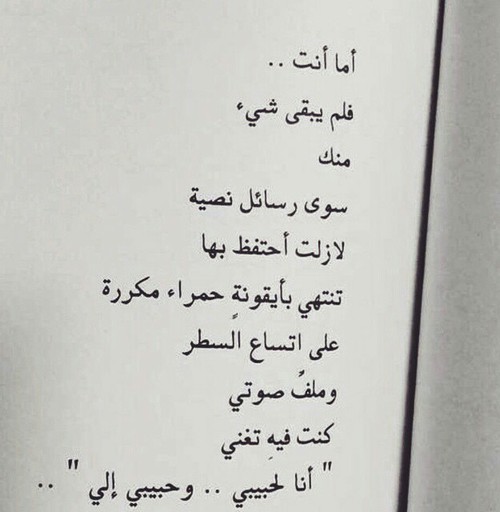 أما أنت ..
فلم يبقى شيء
منك
سوى رسائل نصية
لازلت أحتفظ بها
تنتهي بأيقونةٍ حمراء مكررة
على اتساع السطر
وملفُ صوتي
كنت فيهِ تغني
" أنا لحبيبي .. وحبيبي إلي " ..